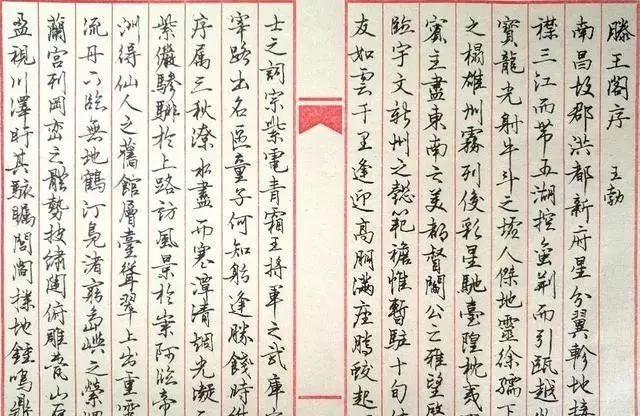 滕王閣序 王勃
南昌故郡洪都新府星分翼軫地接
襟三江而帶五湖控蠻荊而引甌越
寶龍光射牛斗之墟人傑地靈徐孺下
之榻雄州霧列俊彩星馳臺隍枕夷
賓主盡東南之美都督閻公之雅望棨
臨宇文新州之懿範襜帷暫駐十旬休
友如雲千里逢迎高朋滿座騰蛟起
士之詞宗紫電青霜王將軍之武庫家
宰路出名區童子何知躬逢勝餞時維
序屬三秋潦水盡而寒潭清煙光凝
紫儼驂騑於上路訪風景於崇阿臨帝
洲得仙人之舊館層臺聳翠上出重霄
流丹下臨無地鶴汀鳧渚窮島嶼之縈迴
蘭宮列岡巒之體勢披繡闥俯雕甍山原
盈視川澤盱其駭矚閭閻撲地鐘鳴鼎